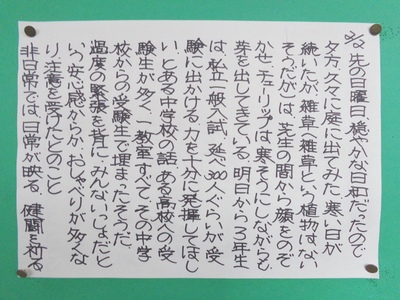 2/2 先の日曜日、穏やかな日和だったので
夕方、久々に庭に出てみた。寒い日が
続いたが、雑草(雑草という植物はない
そうだが)は、芝生の間から顔をのぞ
かせ、チューリップは寒そうにしながらも
芽を出してきている。明日から3年生
は、私立一般入試。延べ300人ぐらいが受
験に出かける。力を十分に発揮してほし
い。とある中学校の話。ある高校への受
験生が多く、一教室すべて、その中学
校からの受験生で埋まったそうだ。
過度の緊張を背に、みんないっしょだと
いう安心感からか、おしゃべりが多くな
り、注意を受けたとのこと
非日常では、日常が映る。 健闘を祈る